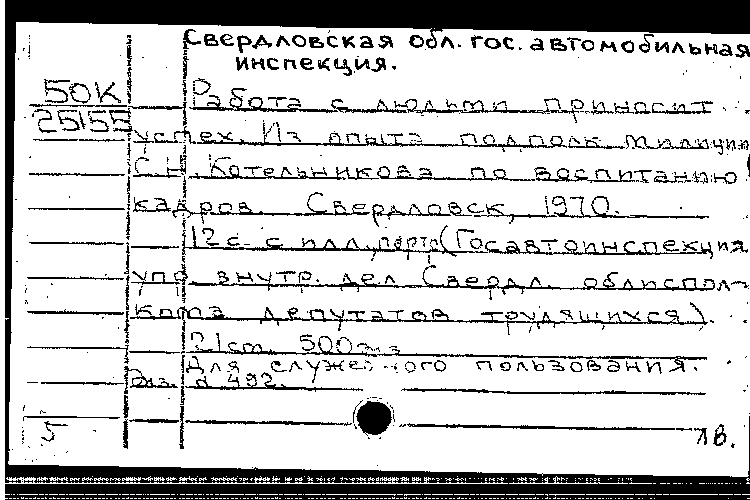 Свердловская обл. гос. автомобильная
инспекция.
50К
25155
Работа с людьми приносит
успех. Из опыта подполк. милиции
С.Н. Котельникова по воспитанию
кадров. Свердловск, 1970.
12 с. с илл., портр. (Госавтоинспекция
упр. внутр. дел Свердл. облиспол-
кома депутатов трудящихся).
21 см. 500 экз.
Для служебного пользования.
Экз. № 492.
5
ЛВ.